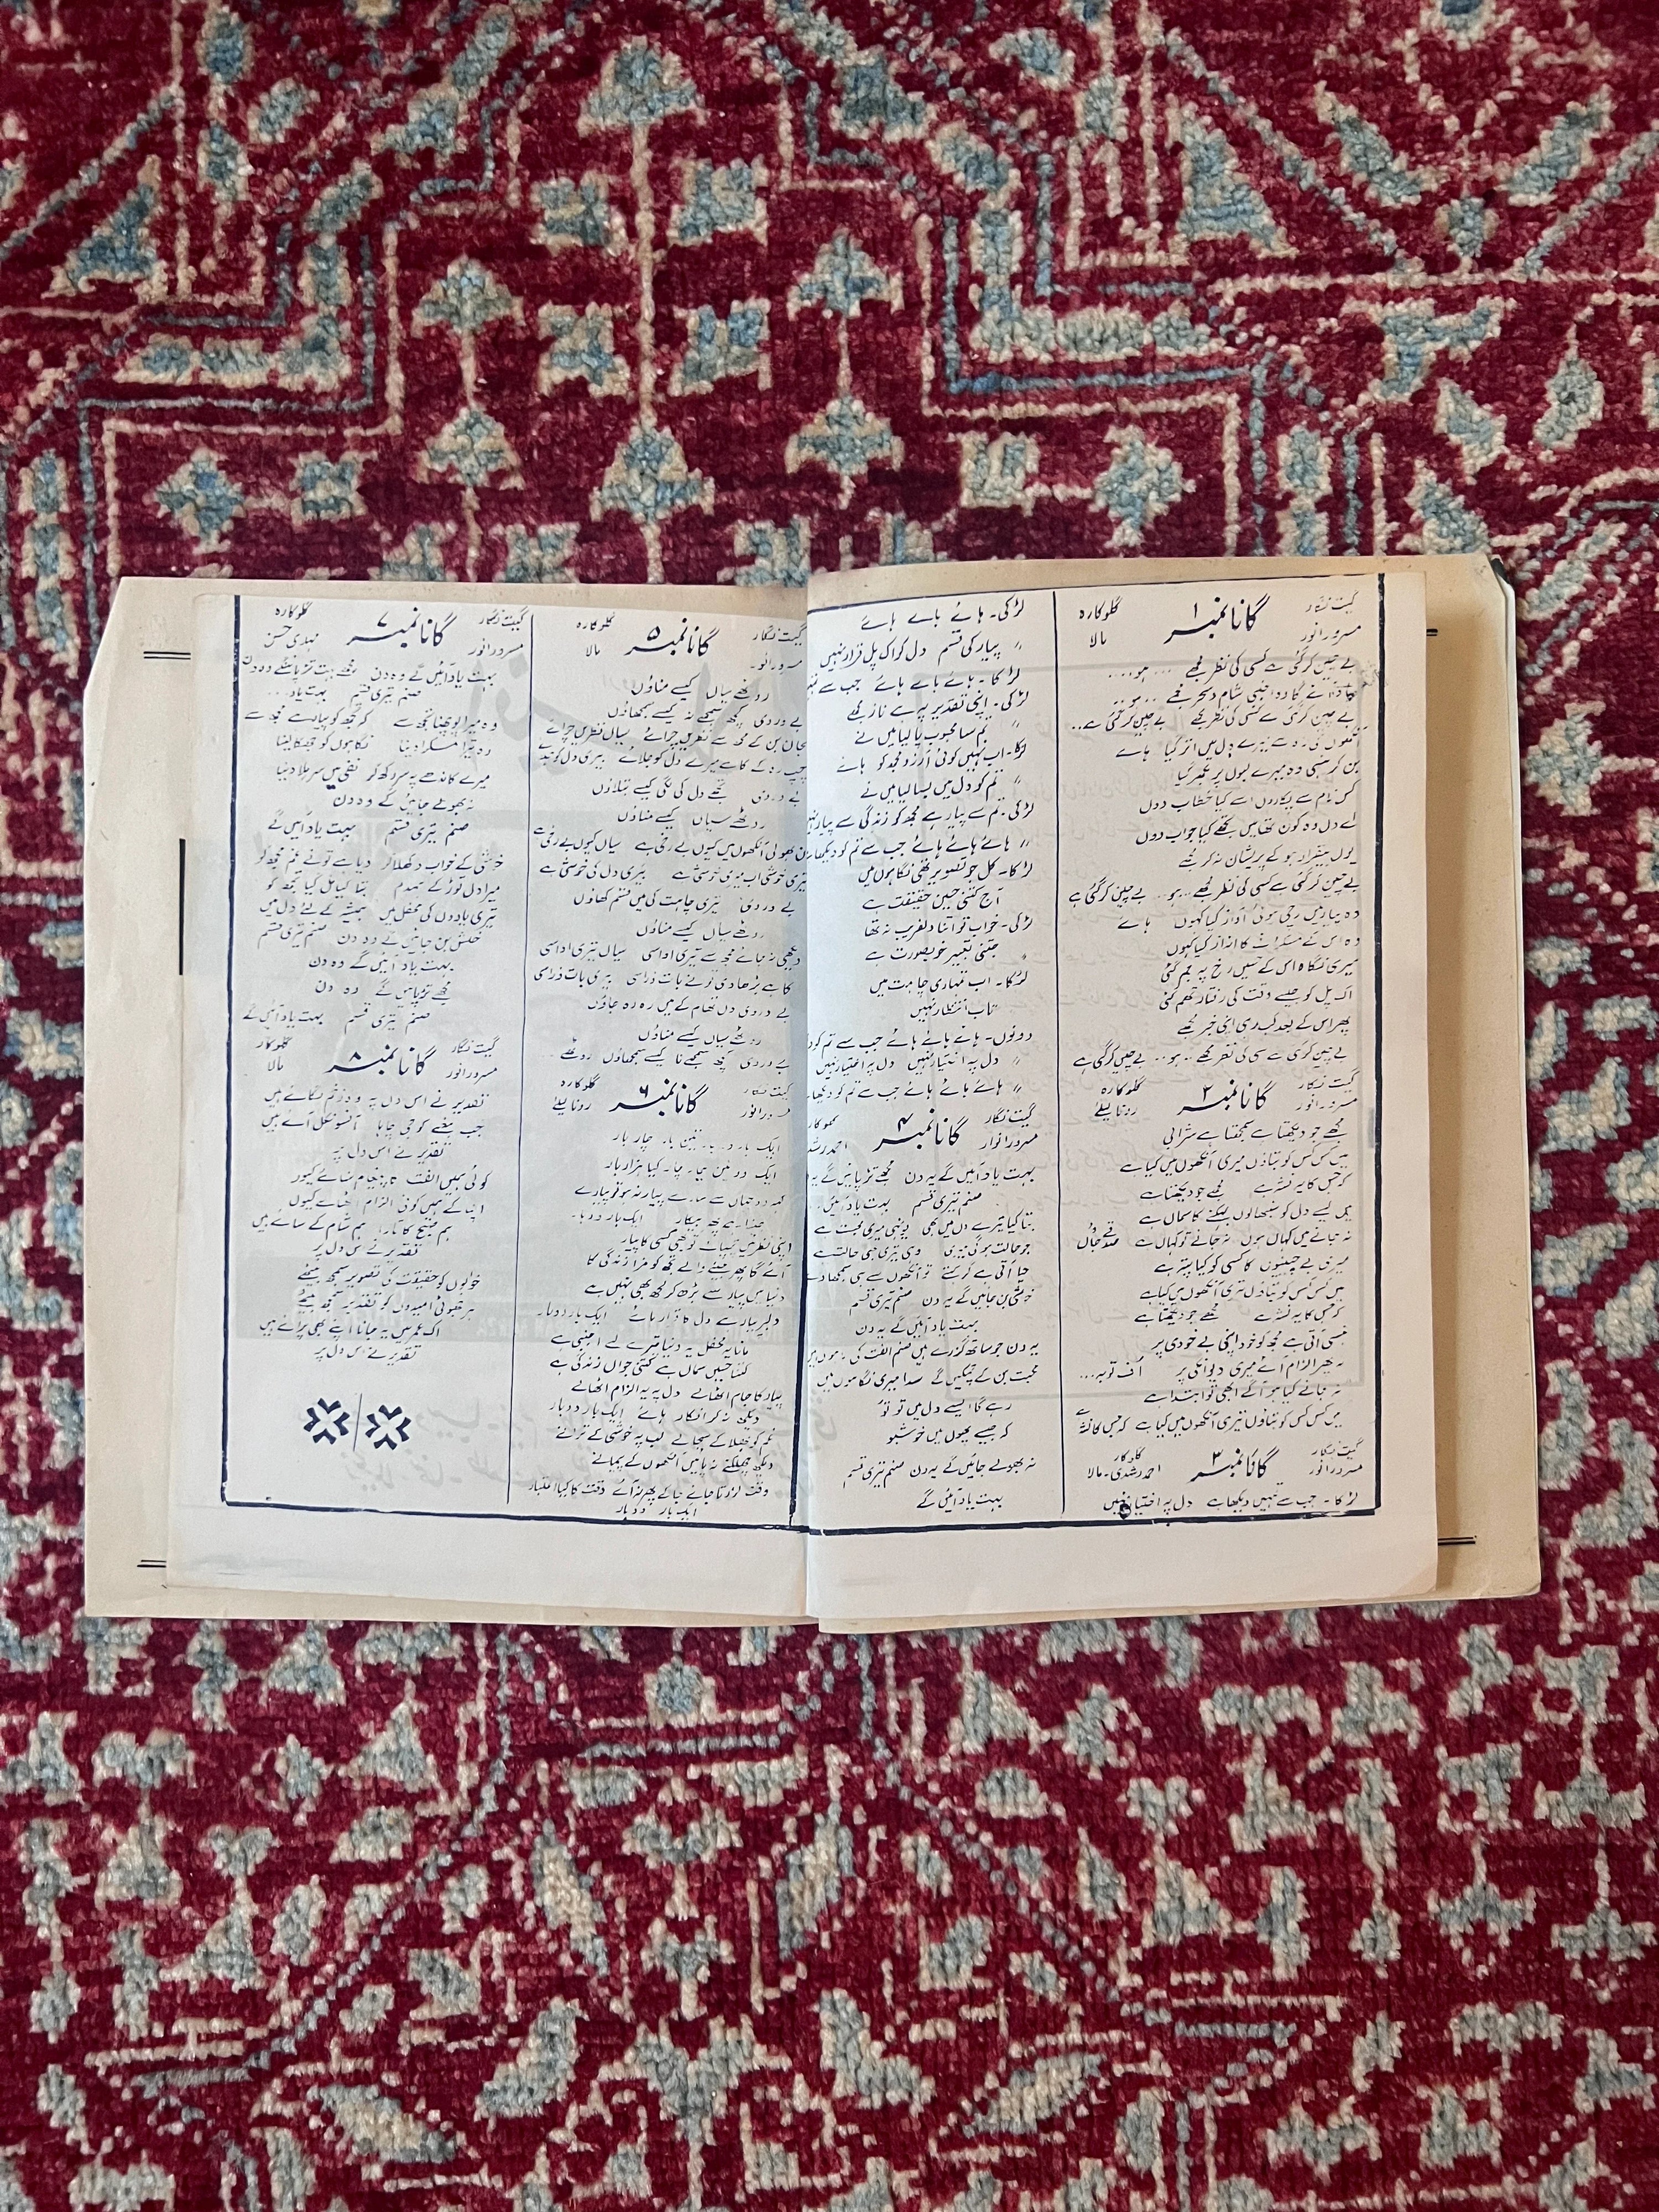 گیت نگار
گانا نمبر ۱
گلوکارہ
مسرور انور
مالا
بے چین کر گئی ہے کسی کی نظر مجھے ... ہو ...
بے چین کر گئی ہے کسی کی نظر مجھے بے چین کر گئی ہے ..
میرے دل میں اتر گیا ہائے
بن کر ہنسی وہ میرے لبوں پر بکھر گیا
کس نام سے پکاروں اسے کیا خطاب دوں
اے دل وہ کون تھا میں تجھے کیا جواب دوں
یوں بیقرار ہو کے پریشان نہ کر مجھے
بے چین کر گئی ہے کسی کی نظر مجھے .. ہو .. بے چین کر گئی ہے
وہ پیار میں رچی ہوئی آواز کیا کہوں ہائے
وہ اس کے مسکرانے کا انداز کیا کہوں
میری نگاہ اس کے حسیں رخ پہ جم گئی
اک پل کو جیسے وقت کی رفتار تھم گئی
پھر اس کے بعد کب رہی اپنی خبر مجھے
بے چین کر گئی ہے کسی کی نظر مجھے .. ہو .. بے چین کر گئی ہے
گیت نگار
گانا نمبر ۲
گلوکارہ
مسرور انور
رونا لیلےٰ
مجھے جو دیکھتا ہے سمجھتا ہے شرابی
میں کس کس کو بتاؤں میری آنکھوں میں کیا ہے
کہ جس کا یہ نشہ ہے مجھے جو دیکھتا ہے
کیسے دل کو سنبھالوں بہکنے کا سماں ہے
نہ جانے میں کہاں ہوں نہ جانے تو کہاں ہے
میری بے چینیوں کا کسی کو کیا پتہ ہے
میں کس کس کو بتاؤں تیری آنکھوں میں کیا ہے
کہ جس کا یہ نشہ ہے مجھے جو دیکھتا ہے
ہنسی آتی ہے مجھ کو خود اپنی بے خودی پر
پھر الزام آئے میری دیوانگی پر اُف توبہ ...
نہ جانے کیا ہو آگے ابھی تو ابتدا ہے
میں کس کس کو بتاؤں تیری آنکھوں میں کیا ہے کہ جس کا نشہ ہے
گیت نگار
گانا نمبر ۳
گلوکار
مسرور انور
احمد رشدی۔ مالا
لڑکا۔ جب سے تمہیں دیکھا ہے دل پہ اختیار نہیں
لڑکی۔ ہائے ہائے ہائے
〃 پیار کی قسم دل کو اک پل قرار نہیں
لڑکا۔ ہائے ہائے ہائے جب سے
لڑکی۔ اپنی تقدیر پہ ہے ناز مجھے
〃 تم سا محبوب پا لیا میں نے
لڑکا۔ اب نہیں کوئی آرزو مجھ کو ہائے
〃 تم کو دل میں بسا لیا میں نے
لڑکی۔ تم سے پیار ہے مجھ کو زندگی سے پیار نہیں
〃 ہائے ہائے ہائے جب سے تم کو دیکھا
لڑکا۔ کل جو تصویر تھی نگاہوں میں
آج کتنی حسیں حقیقت ہے
لڑکی۔ خواب تو اتنا دلفریب نہ تھا
جتنی تعبیر خوبصورت ہے
لڑکا۔ اب تمہاری چاہت میں
تابِ انتظار نہیں
دونوں۔ ہائے ہائے ہائے جب سے تم کو
〃 دل پہ اختیار نہیں دل پر اختیار نہیں
〃 ہائے ہائے ہائے جب سے تم کو دیکھا
گیت نگار
گانا نمبر ۴
مسرور انوار
احمد
بہت یاد آئیں گے یہ دن مجھے تڑپائیں گے یہ
صنم تیری قسم بہت یاد آئیں ...
بتا کیا تیرے دل میں بھی یونہی میری محبت ہے
جو حالت ہوئی تیری وہی تیری بھی حالت ہے
حیا آتی ہے گر کہتے تو آنکھوں سے ہی سمجھا دے
خوشی بن جائیں گے یہ دن صنم تیری قسم
بہت یاد آئیں گے یہ دن
یہ دن جو ساتھ گزرے ہیں صنم الفت کی
محبت بن کے چمکیں گے سدا میری نگاہوں میں
رہے گا ایسے دل میں تو تُو
کہ جیسے پھولوں میں خوشبو
نہ بھولے جائیں گے یہ دن صنم تیری قسم
بہت یاد آئیں گے
گیت نگار
گانا نمبر ۵
گلوکارہ
مالا
روٹھے سیاں کیسے مناؤں
بے دردی کچھ سمجھے نہ کیسے سمجھاؤں
جان بن کے مجھ سے نظریں چرائے سیاں نظریں چرائے
چپ رہ کے کاہے میرے دل کو جلائے بیری دل کو
بے دردی تجھے دل کی لگی کیسے بتلاؤں
روٹھے سیاں کیسے مناؤں
بھولی آنکھوں میں کیوں بے رخی ہے سیاں کیوں بے رخی ہے
تیری خوشی اب میری خوشی ہے بیری دل کی خوشی ہے
بے دردی تیری چاہت کی میں قسم کھاؤں
روٹھے سیاں کیسے مناؤں
دیکھی نہ جائے مجھ سے تیری اداسی سیاں تیری اداسی
کاہے بڑھا دی تو نے بات ذراسی بیری بات ذراسی
بے دردی دل تھام کے میں رہ رہ جاؤں
روٹھے سیاں کیسے مناؤں
بے دردی کچھ سمجھے نا کیسے سمجھاؤں روٹھے ..
گیت نگار
گانا نمبر ۶
گلوکارہ
مسرور انور
رونا لیلےٰ
ایک بار دو بار تین بار چار بار
اپنی نظر میں چھپائے تو بھی کسی کا پیار
آئے گا پھر جینے والے تجھ کو مزا زندگی کا
دنیا میں پیار سے بڑھ کر کچھ بھی نہیں ہے
مانا یہ محفل یہ دنیا تیرے لے اجنبی ہے
کتنا حسیں سماں ہے کتنی جواں زندگی ہے
پیار کا جام اٹھالے دل پہ یہ الزام اٹھالے
دیکھ نہ کر انکار ہائے ایک بار دو بار
غم کو بھلا کے سجالے لب پہ خوشی کے ترانے
دیکھ چھلکنے نہ پائیں آنکھوں کے پیمانے
وقت گزرتا جائے جا کے پھر نہ آئے وقت کا کیا اعتبار
ایک بار دو بار
گیت نگار
گانا نمبر ۷
گلوکارہ
مسرور انور
مہدی حسن
بہت یاد آئیں گے وہ دن مجھے بہت تڑپائینگے وہ دن
صنم تیری قسم بہت یاد ...
وہ میرا پوچھنا تجھ سے کہ تجھ کو پیار ہے مجھ سے
وہ تیرا مسکرا دینا نگاہوں کو جھکا لینا
میرے کاندھے پہ سر رکھ کر نفی میں سر ہلا دینا
نہ بھولے جائیں گے وہ دن
صنم تیری قسم بہت یاد آئیں گے
خوشی کے خواب دکھلا کر دیا ہے تو نے غم مجھ کو
میرا دل توڑ کے ہمدم بتا کیا مل گیا تجھ کو
تیری یادوں کی محفل میں ہمیشہ کے لئے دل میں
خلش بن جائیں گے وہ دن صنم تیری قسم
بہت یاد آئیں گے وہ دن
مجھے تڑپائیں گے وہ دن
صنم تیری قسم بہت یاد آئیں گے
گیت نگار
گانا نمبر ۸
گلوکار
مسرور انور
مالا
تقدیر نے اس دل پہ وہ زخم لگائے ہیں
جب ہنسنے کو جی چاہا آنسو نکل آئے ہیں
تقدیر نے اس دل پہ
اپنا کے ہمیں کوئی الزام اٹھائے کیوں
ہم صبح کا تارا ہم شام کے سائے ہیں
تقدیر نے اس دل پر
خوابوں کو حقیقت کی تصویر سمجھ بیٹھے
ہر جھوٹی امیدوں کو تقدیر سمجھ بیٹھے
اک عمر میں یہ جانا اپنے بھی پرائے ہیں
تقدیر نے اس دل پر